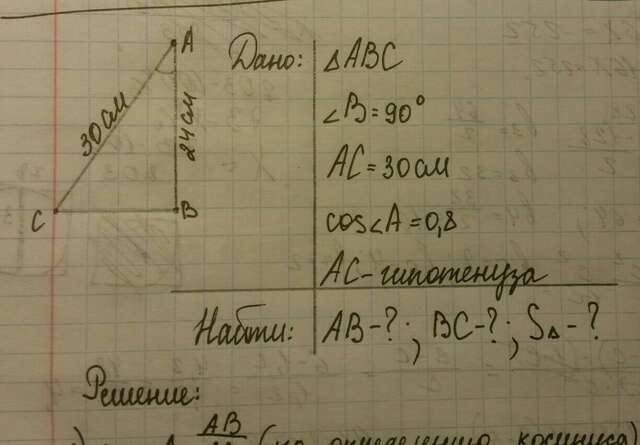 A
30см
24см
C
B
Дано:
△ABC
∠B=90°
AC=30см
cos∠A=0,8
AC-гипотенуза
Найти:
AB-?; BC-?; S△-?
Решение:
AB
(по определению косинуса)